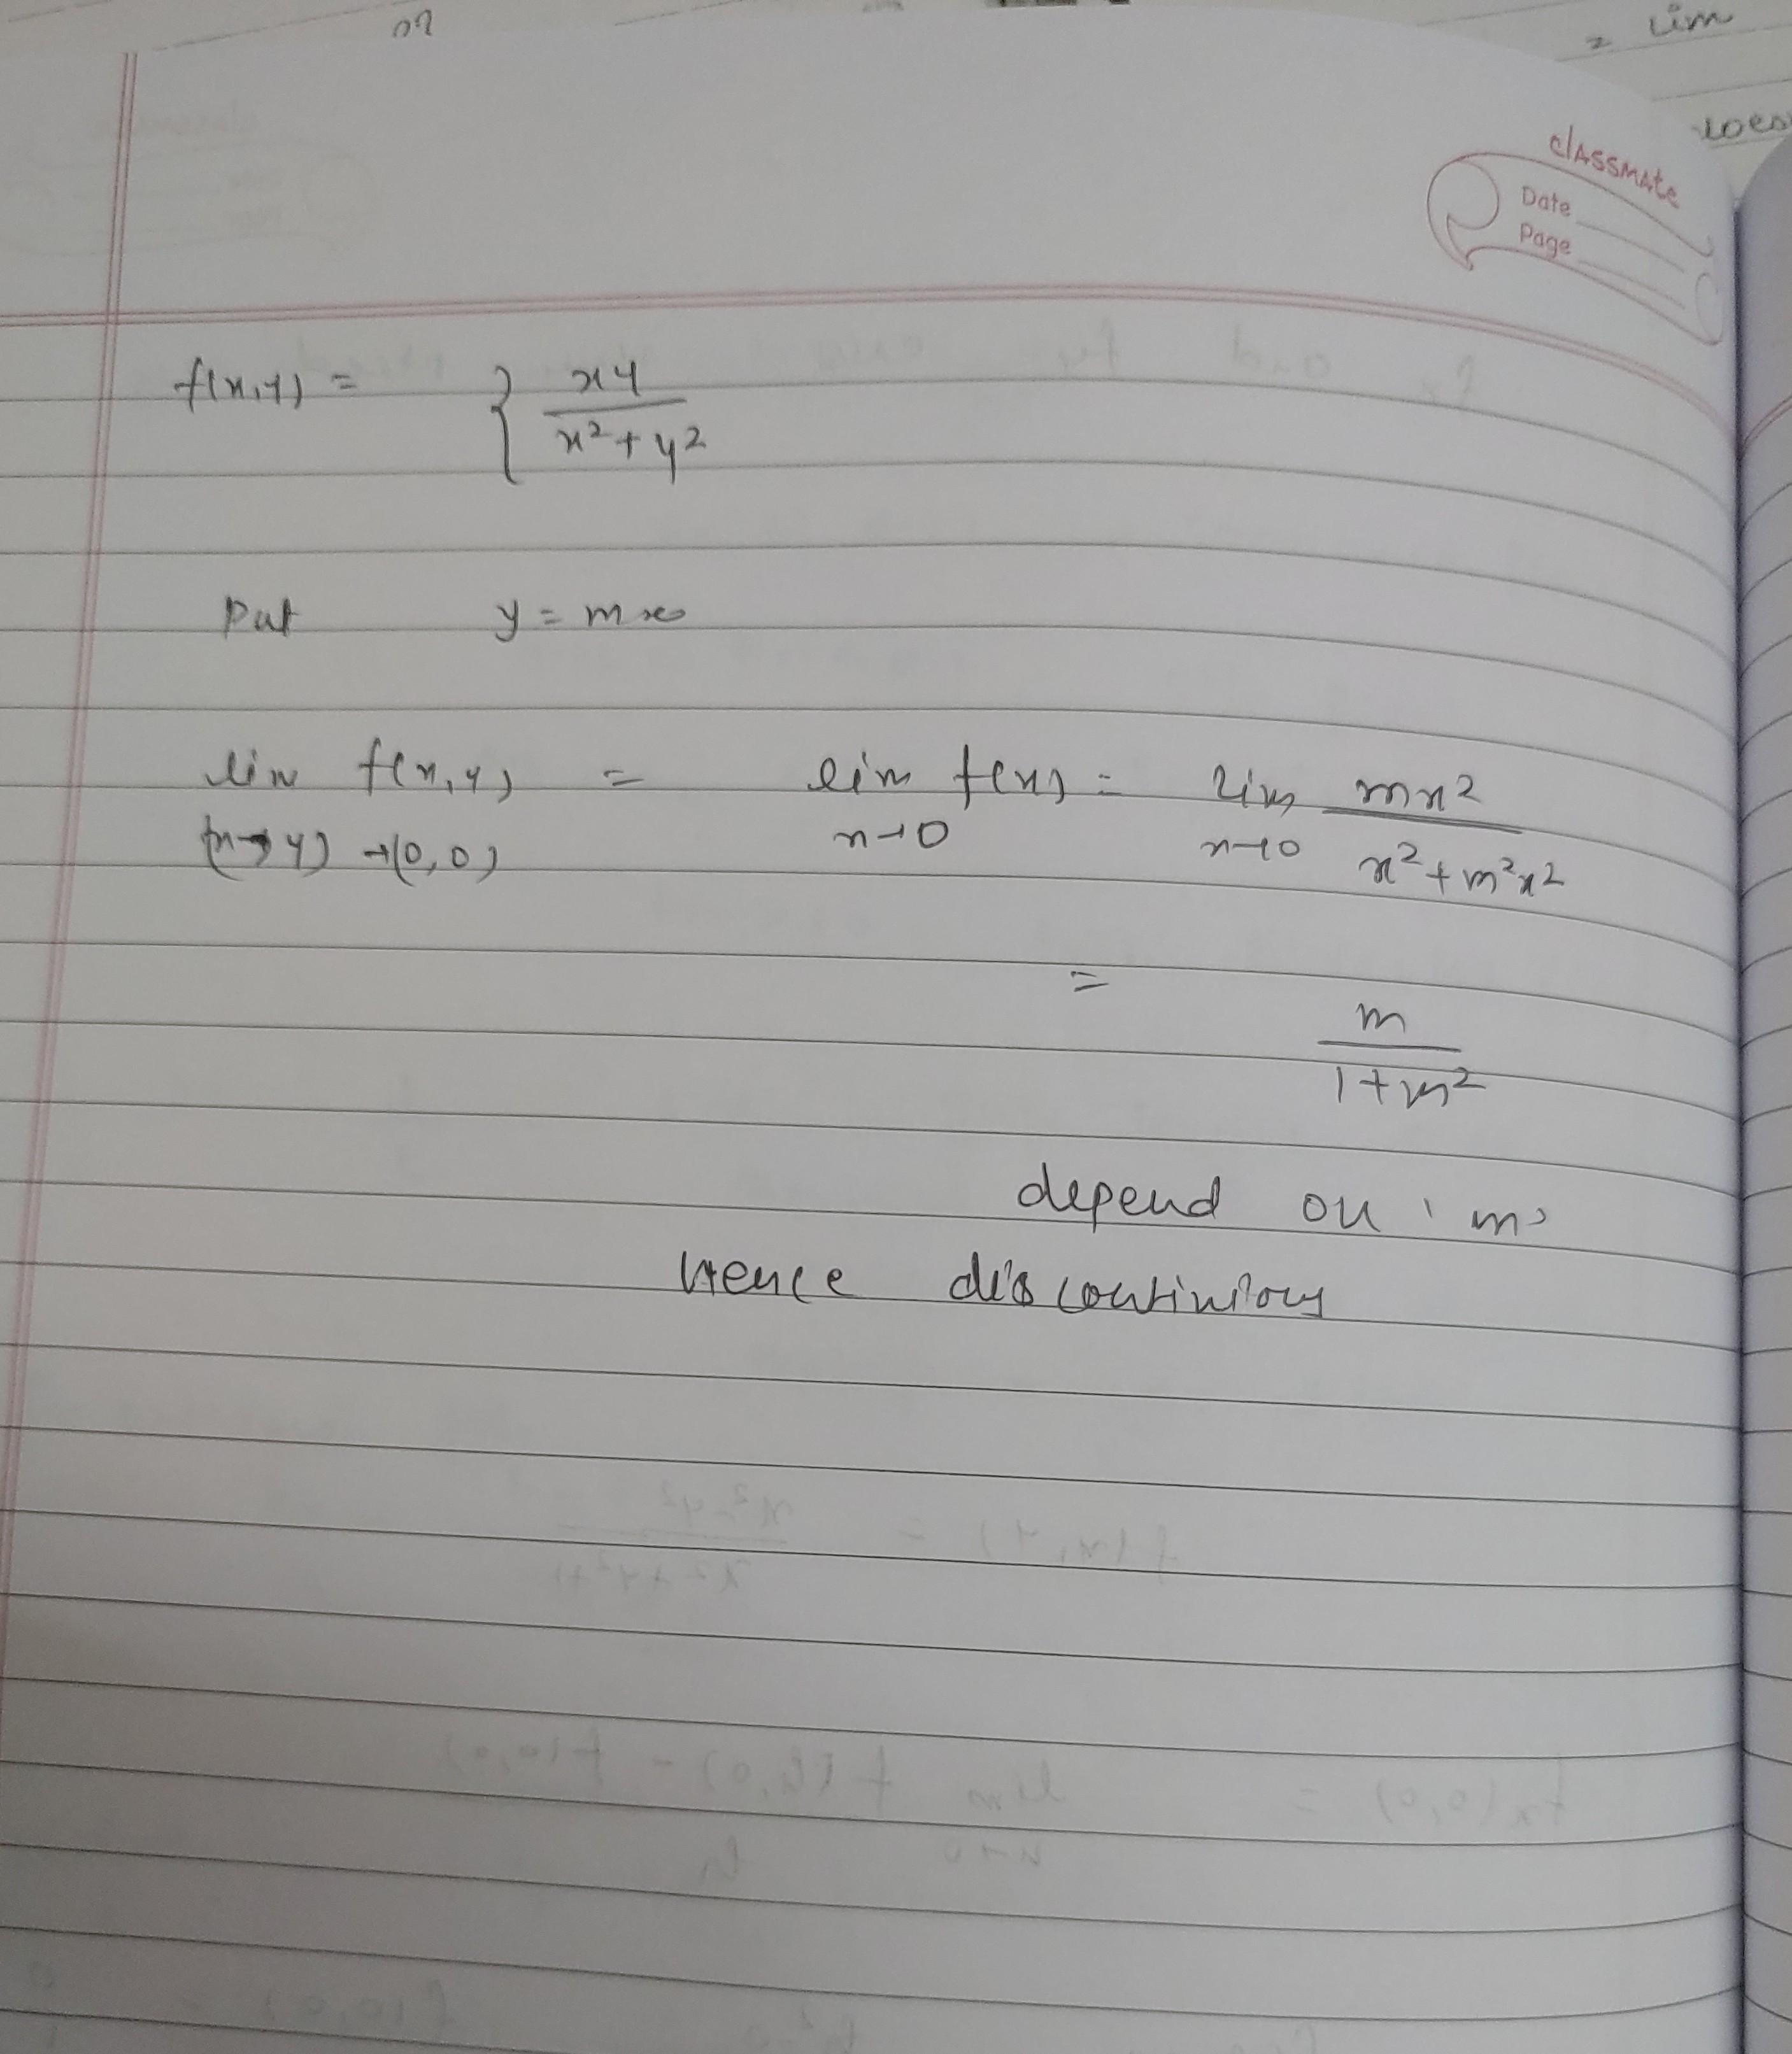 m
= lim
classmate
Date
Page
f(x,y) = { xy
x² + y²
Put y = mx
lim f(x,y) = lim f(x) = lim mx²
(x→y) →(0,0) x→0 x→0 x² + m²x²
=
m
1+m²
depend on 'm'
Hence discontinious